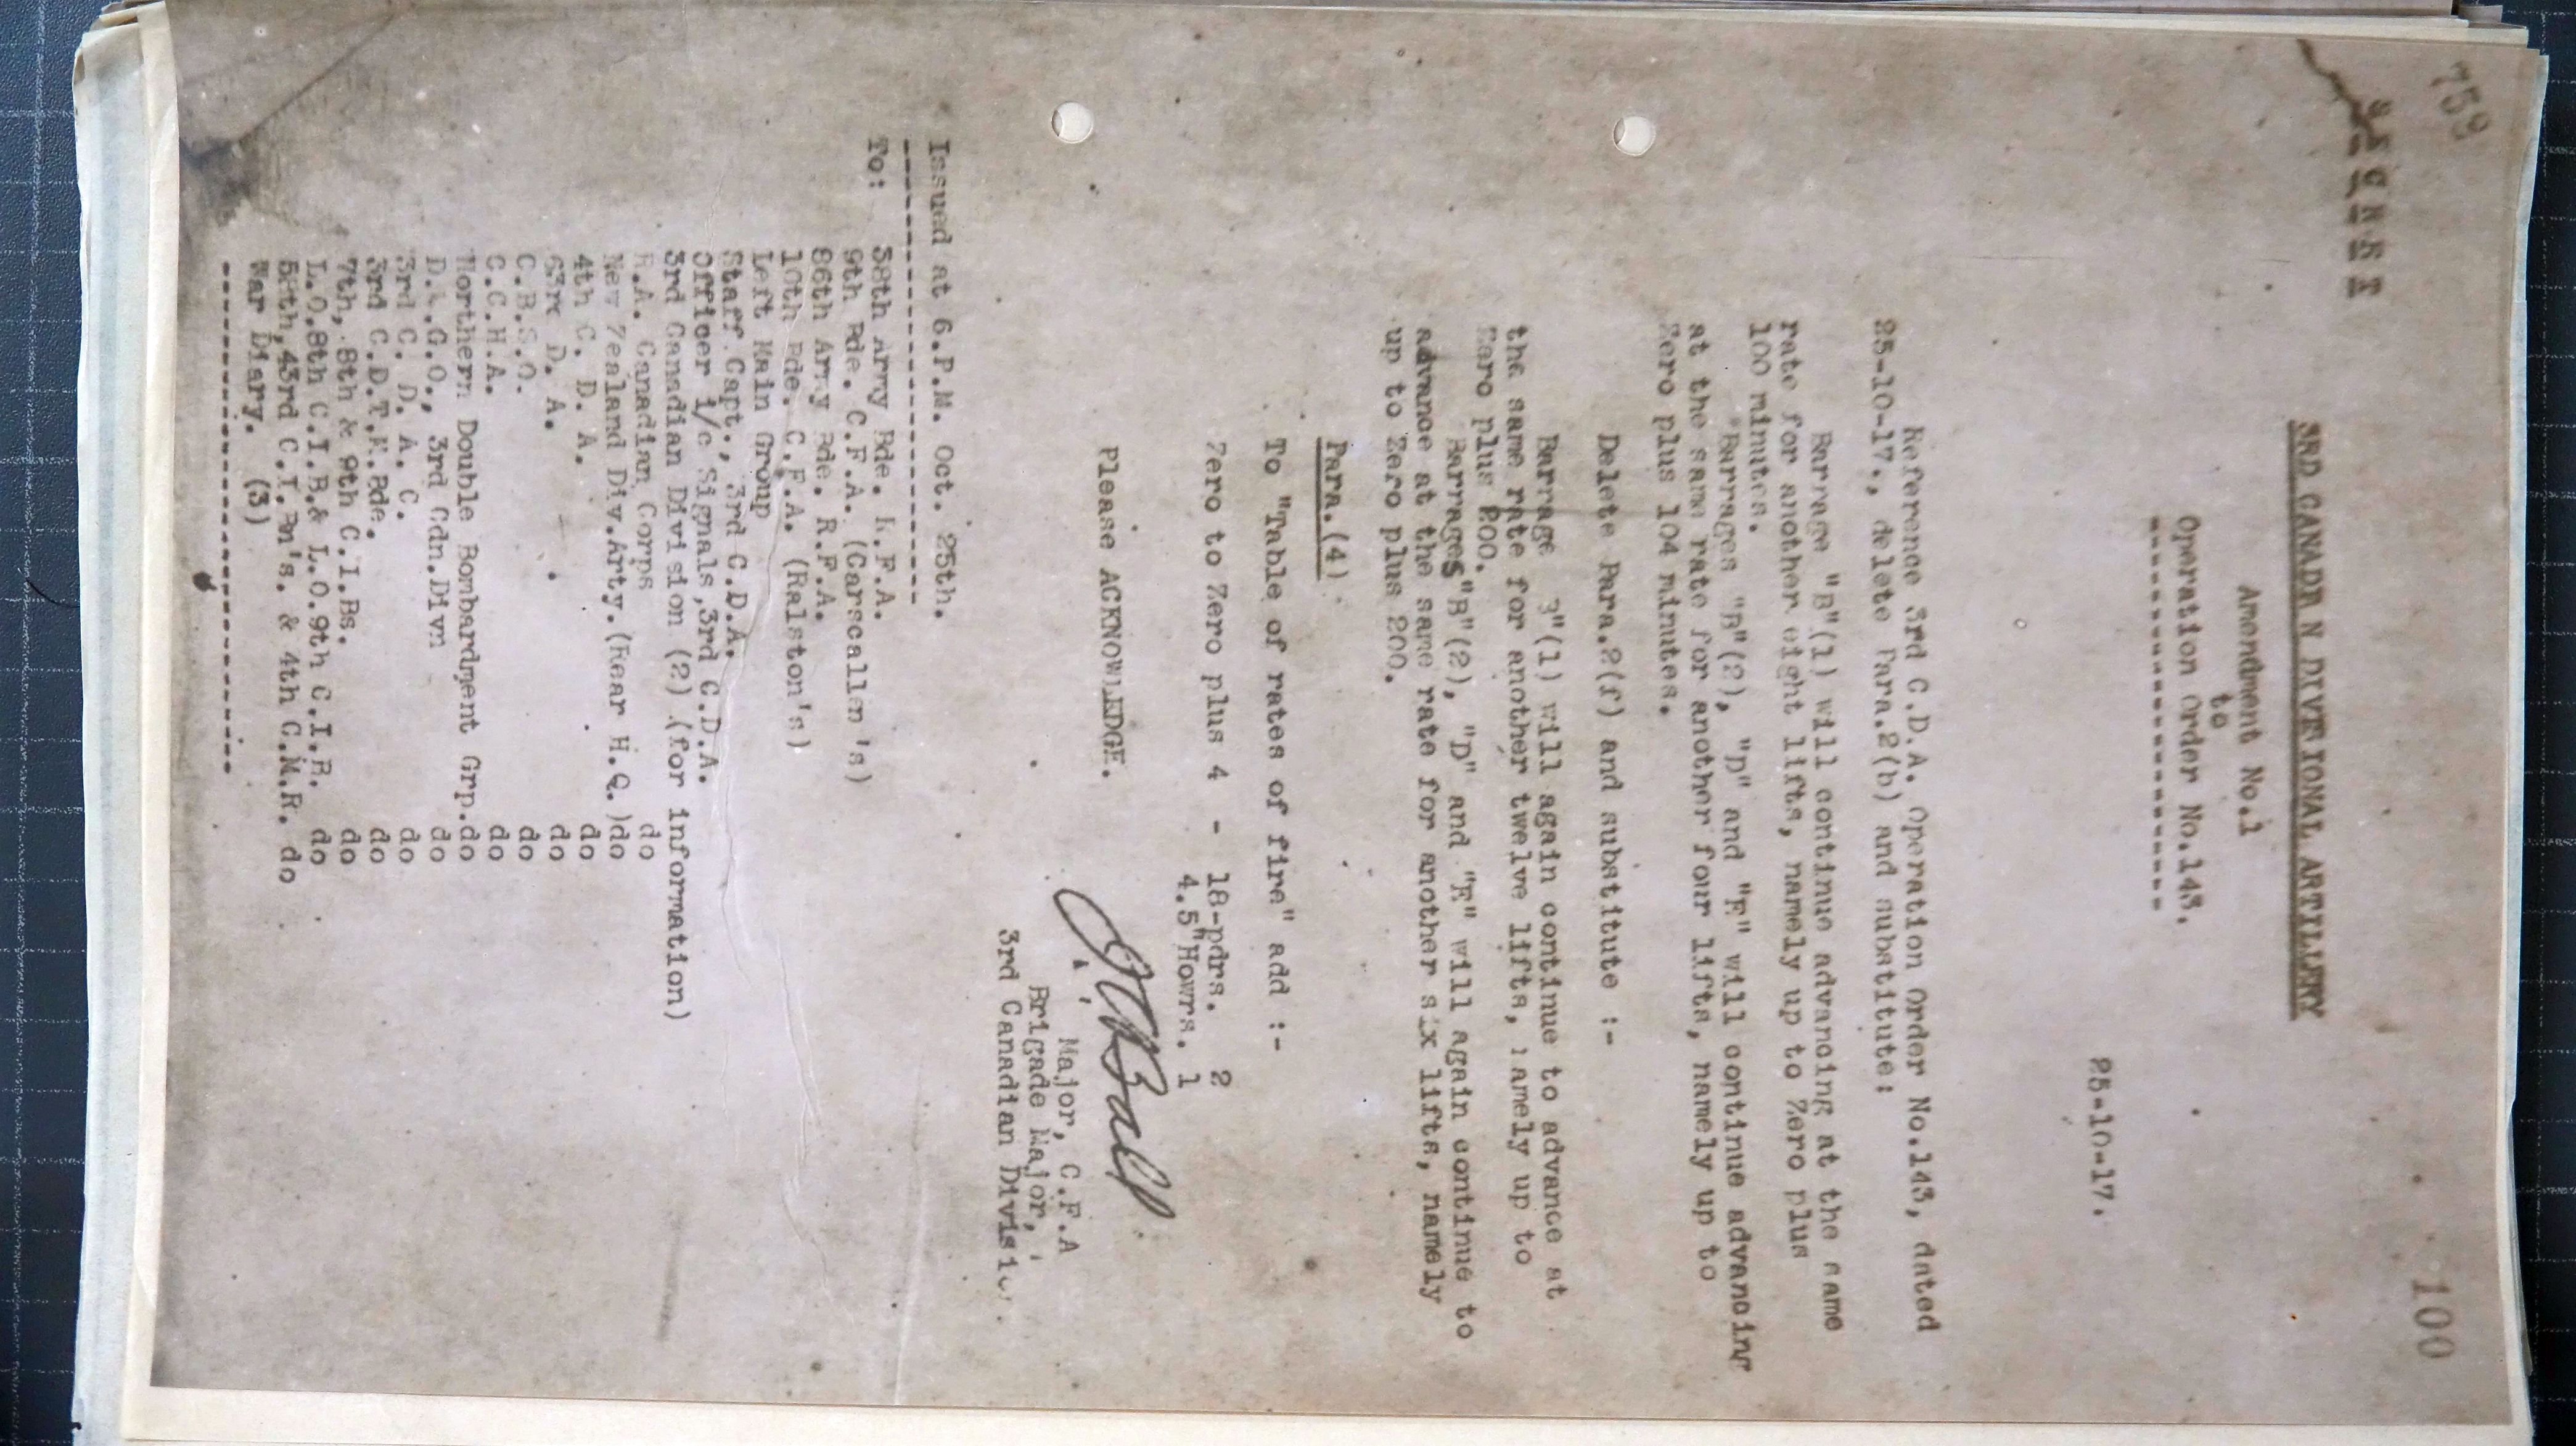 759
100
SECRET
3RD CANADIAN DIVISIONAL ARTILLERY
Amendment No.1
to
Operation Order No.143.
25-10-17.
Reference 3rd C.D.A. Operation Order No.143, dated
25-10-17., delete Para.2(b) and substitute:
Barrage "B"(1) will continue advancing at the same
rate for another eight lifts, namely up to Zero plus
100 minutes.
Barrages "B"(2), "D" and "E" will continue advancing
at the same rate for another four lifts, namely up to
Zero plus 104 minutes.
Delete Para.2(f) and substitute :-
Barrage B"(1) will again continue to advance at
the same rate for another twelve lifts, namely up to
Zero plus 200.
Barrages "B"(2), "D" and "E" will again continue to
advance at the same rate for another six lifts, namely
up to Zero plus 200.
Para.(4)
To "Table of rates of fire" add :-
Zero to Zero plus 4 - 18-pdrs. 2
4.5"Howrs. 1
Please ACKNOWLEDGE.
Major, C.F.A
Brigade Major,
3rd Canadian Divisi
Issued at 6.P.M. Oct. 25th.
To: 38th Army Bde. R.F.A.
9th Bde. C.F.A. (Carscallen's)
86th Army Bde. R.F.A.
10th Bde. C.F.A. (Ralston's)
Left Main Group
Staff Capt., 3rd C.D.A.
Officer i/c Signals,3rd C.D.A.
3rd Canadian Division (2) (for information)
R.A. Canadian Corps do
New Zealand Div.Arty.(Rear H.Q.)do
4th C. D. A. do
63rd D. A. do
C.B.S.O. do
C.C.H.A. do
Northern Double Bombardment Grp.do
D.A.G.O., 3rd Cdn.Divn do
3rd C. D. A. C. do
3rd C.D.T.M.Bde. do
7th, 8th & 9th C.I.Bs. do
L.O.8th C.I.B.& L.O.9th C.I.B. do
58th,43rd C.I.Bn's. & 4th C.M.R. do
War Diary. (3)